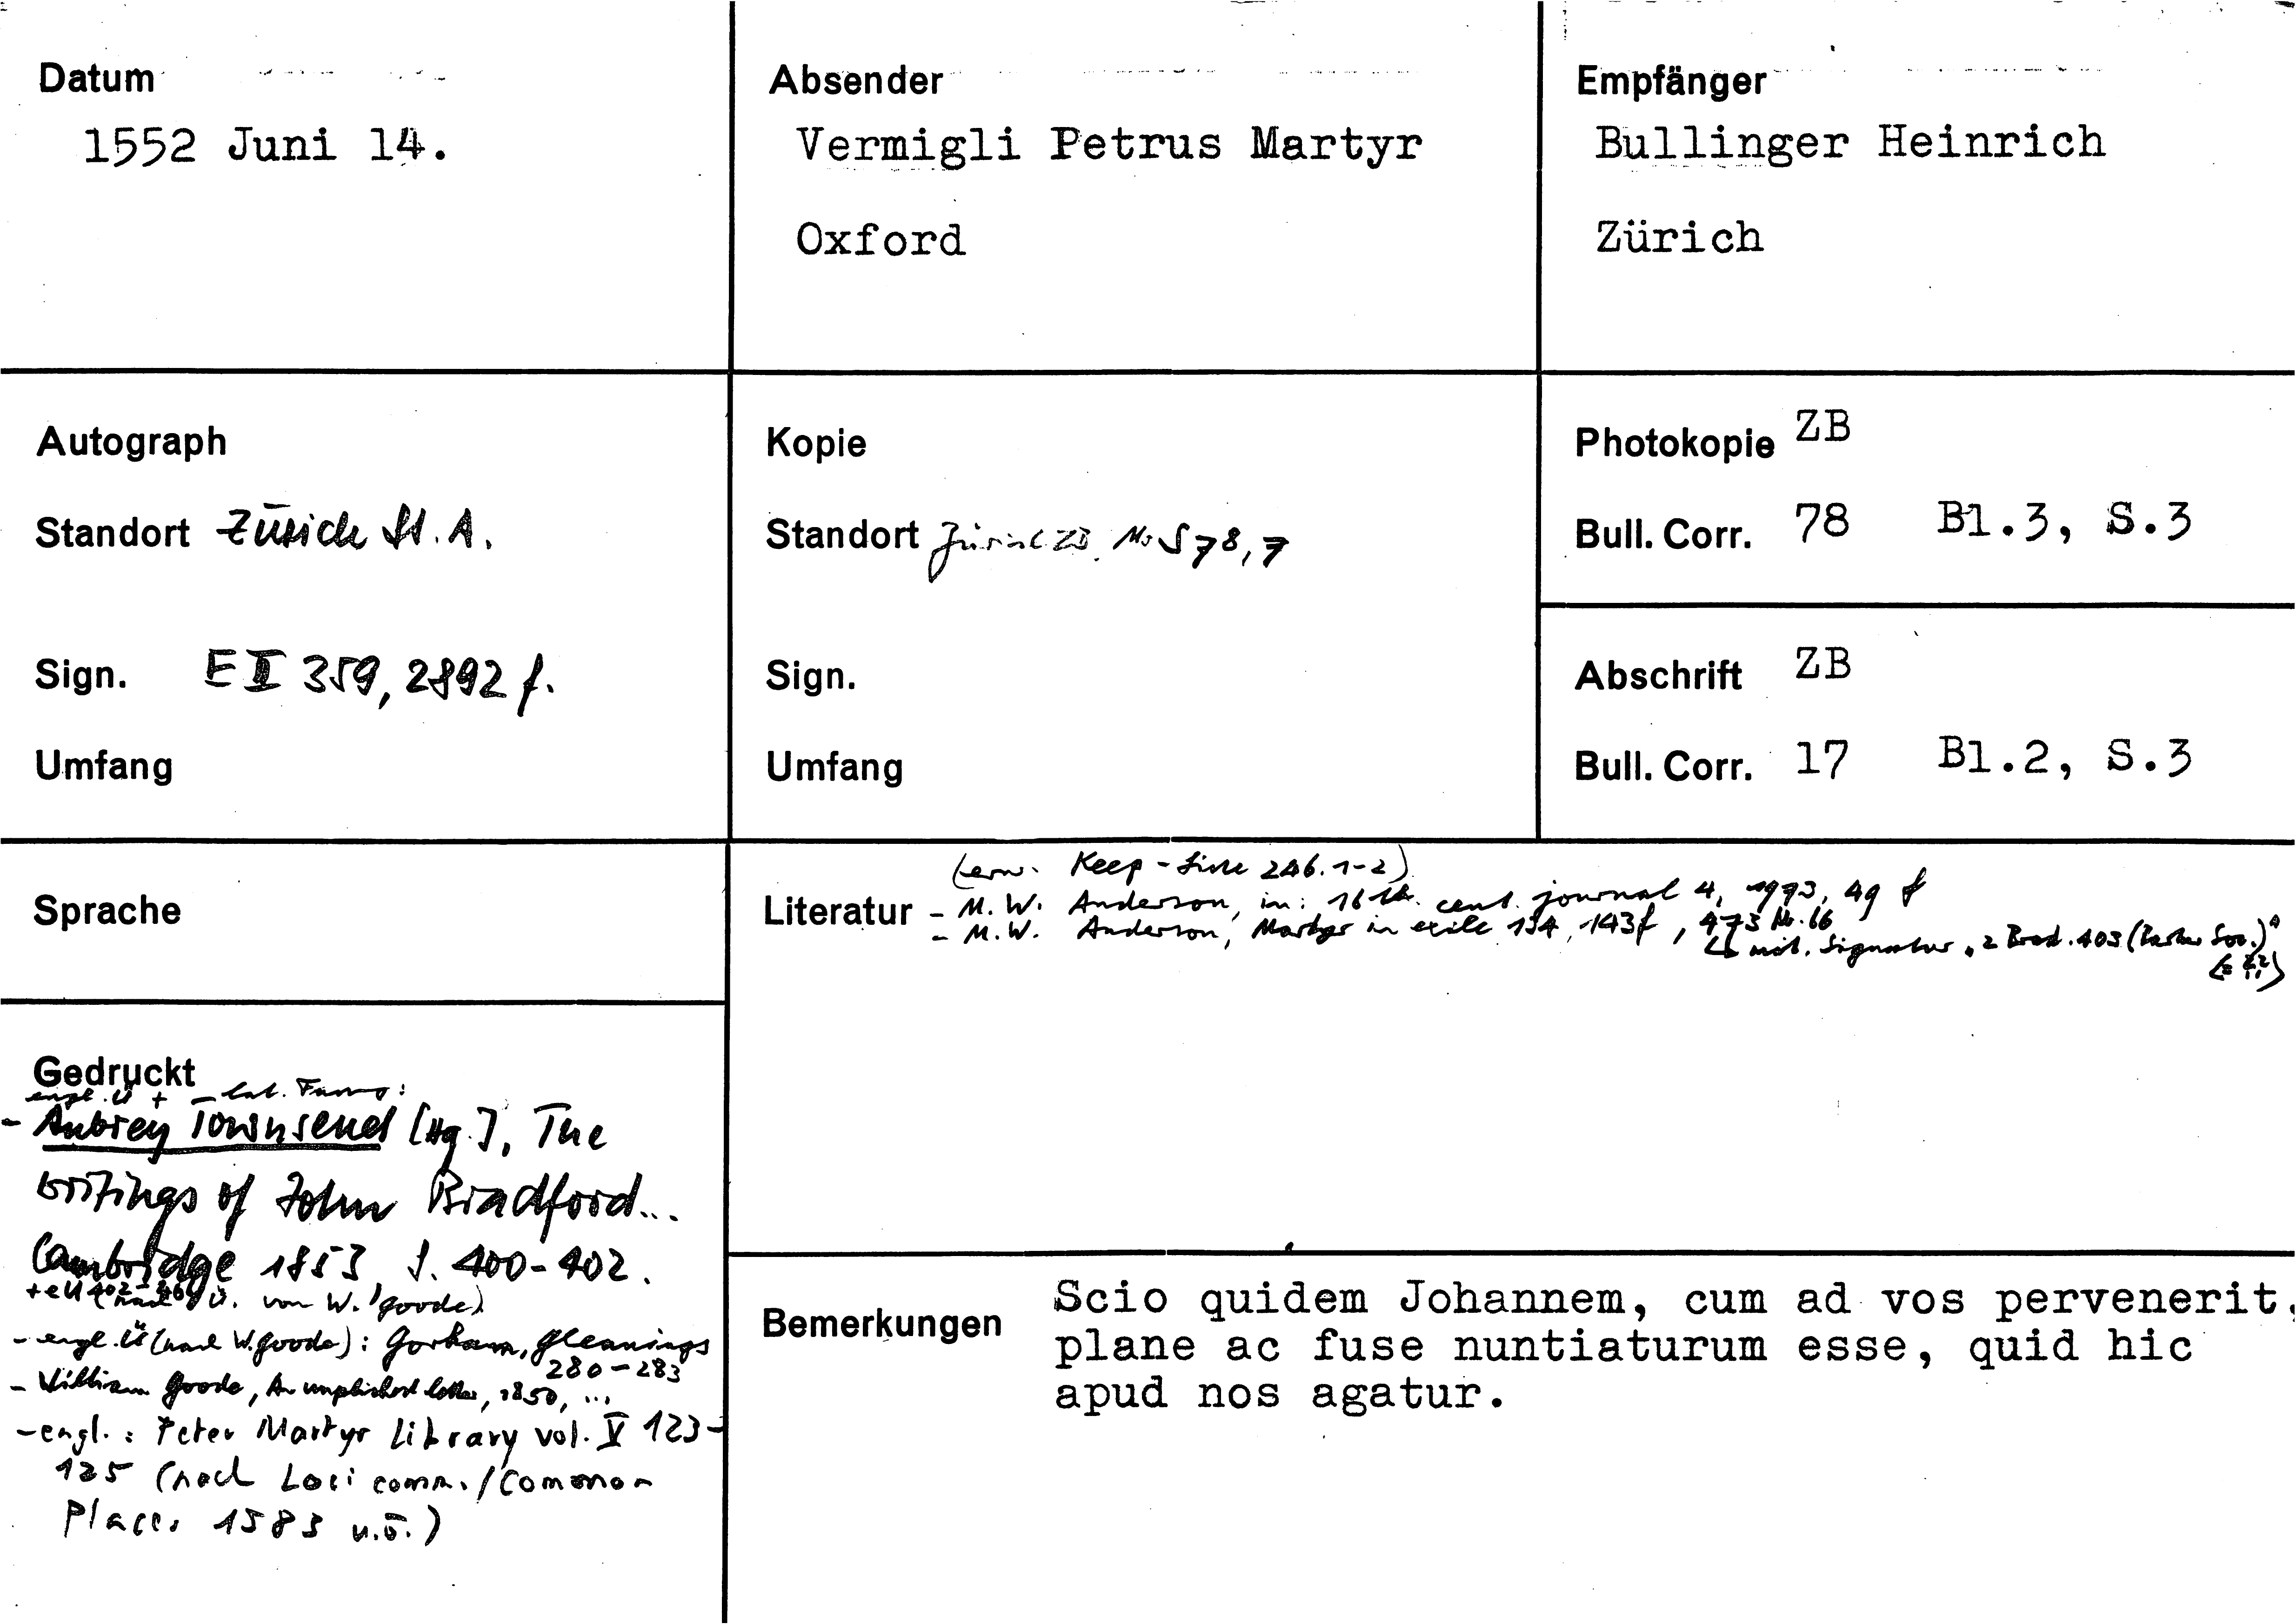 Datum
1552 Juni 14.
Absender
Vermigli Petrus Martyr
Oxford
Empfänger
Bullinger Heinrich
Zürich
Autograph
Standort Zürich St. A.
Sign. E II 359, 2892 f.
Umfang
Kopie
Standort Zürich ZB, Ms S 78, 7
Sign.
Umfang
Photokopie ZB
Bull. Corr. 78 Bl.3, S.3
Abschrift ZB
Bull. Corr. 17 Bl.2, S.3
Sprache
Literatur
(erw. Keep-Liste 246.1-2)
- M. W. Anderson, in: 16th. cent. journal 4, 1973, 49 f
- M. W. Anderson, Martyr in exile 134, 143f, 473 Nr. 66
mit. Signatur "2 Brad. 403 (Parker Soc.)"
Gedruckt
engl. Ü + lat.
- Aubrey Townsend [Hg.], The
writings of John Bradford...
Cambridge 1853, S. 400-402.
Ü. von W. Goode)
- engl. Ü (nach W. Goode): Gorham, Gleanings
280-283
- William Goode, An unplished letter, 1850, ...
- engl.: Peter Martyr Library vol. V 123-
125 (nach Loci comm./Common
Places 1583 u.ö.)
Bemerkungen
Scio quidem Johannem, cum ad vos pervenerit,
plane ac fuse nuntiaturum esse, quid hic
apud nos agatur.